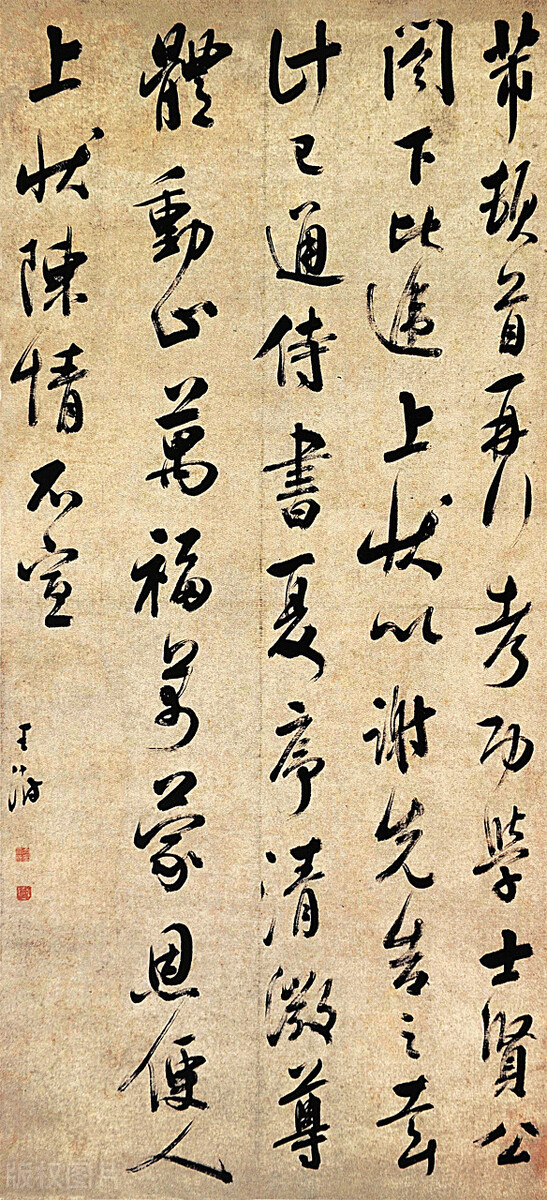 芾頓首再拜考功學士賢公
閣下比上状以謝先告之
計已通侍書夏序清澂尊
體動止萬福蒙恩便人
上状陳情不宣
王澍
版权图片